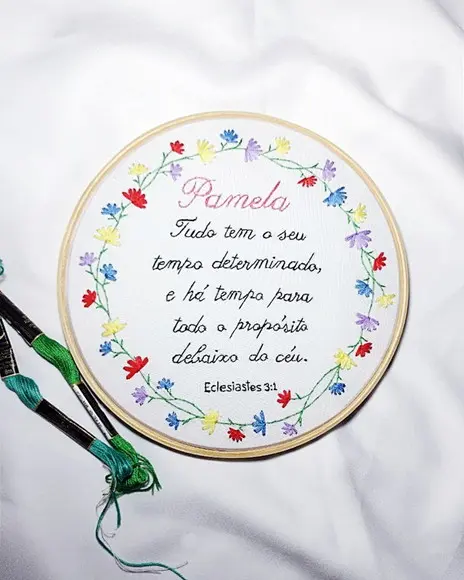 Pamela
Tudo tem o seu
tempo determinado,
e há tempo para
todo o propósito
debaixo do céu.
Eclesiastes 3:1